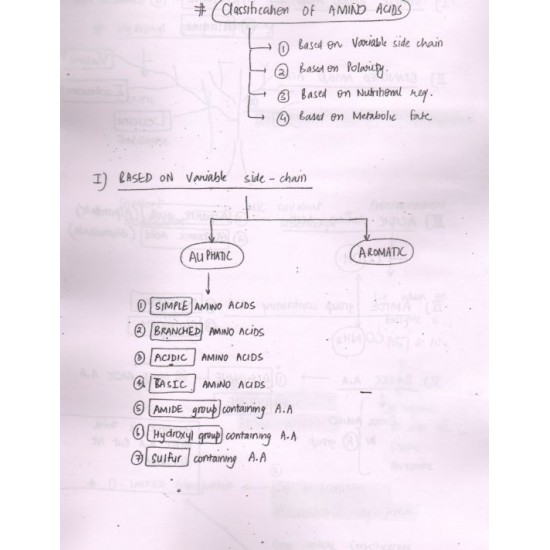 # Classification OF AMINO ACIDS
① Based on Variable side chain
② Based on Polarity.
③ Based on Nutritional req.
④ Based on Metabolic fate
I) BASED ON Variable side-chain
ALIPHATIC
AROMATIC
① SIMPLE AMINO ACIDS
② BRANCHED AMINO ACIDS
③ ACIDIC AMINO ACIDS
④ BASIC AMINO ACIDS
⑤ AMIDE group containing A.A
⑥ Hydroxyl group containing A.A
⑦ Sulfur containing A.A